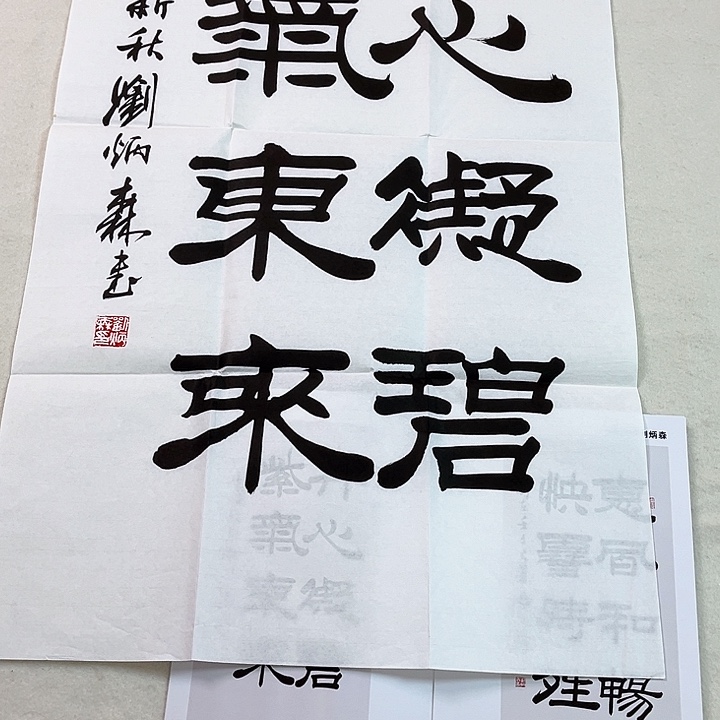 心凝碧
氣東來
新秋劉炳森書
劉炳森印
炳森
惠風和暢
快雪時晴
心凝碧
紫氣東來